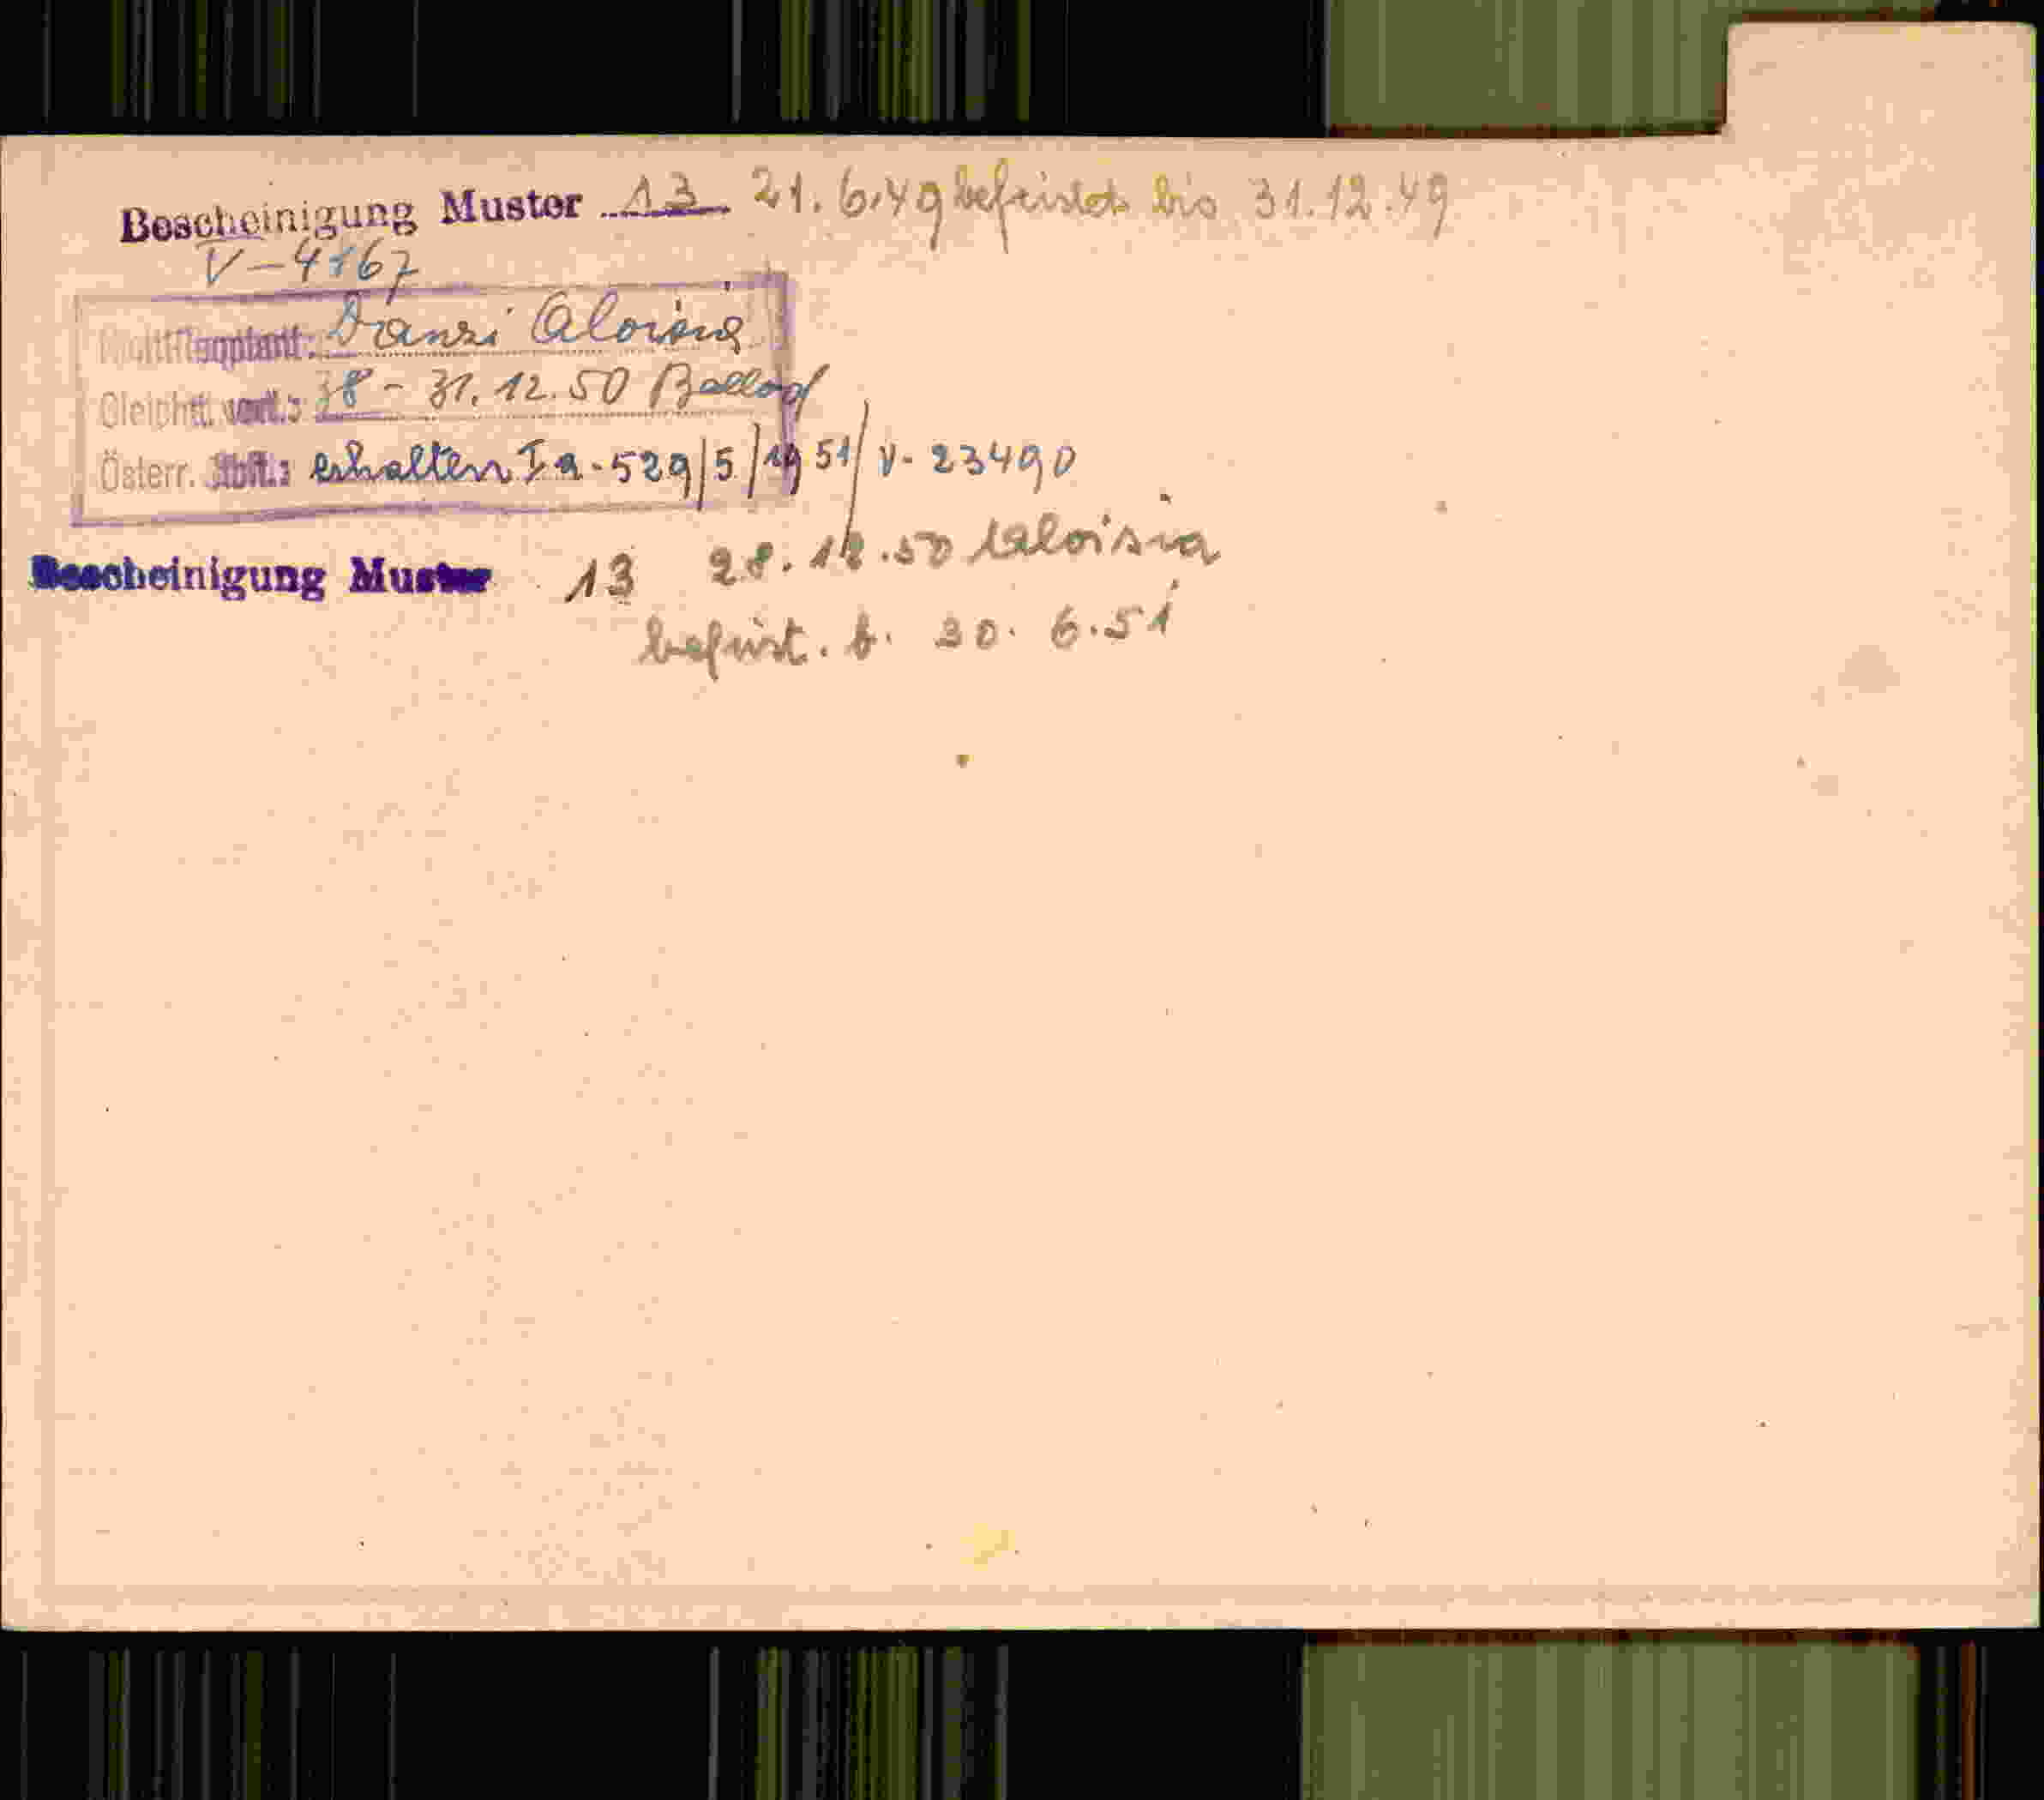 Bescheinigung Muster 13 21.6.49 befristet bis 31.12.49
V-4167
Aloisia
Gleichst. 38 - 31.12.50
Österr. erhalten Ia-529/5/1951/V-23490
Bescheinigung Muster 13 28.12.50 Aloisia
befrist. b. 30.6.51